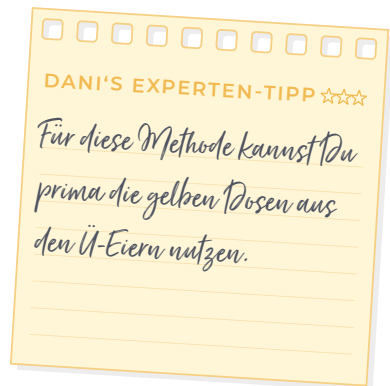 DANI'S EXPERTEN-TIPP
Für diese Methode kannst Du
prima die gelben Dosen aus
den Ü-Eiern nutzen.